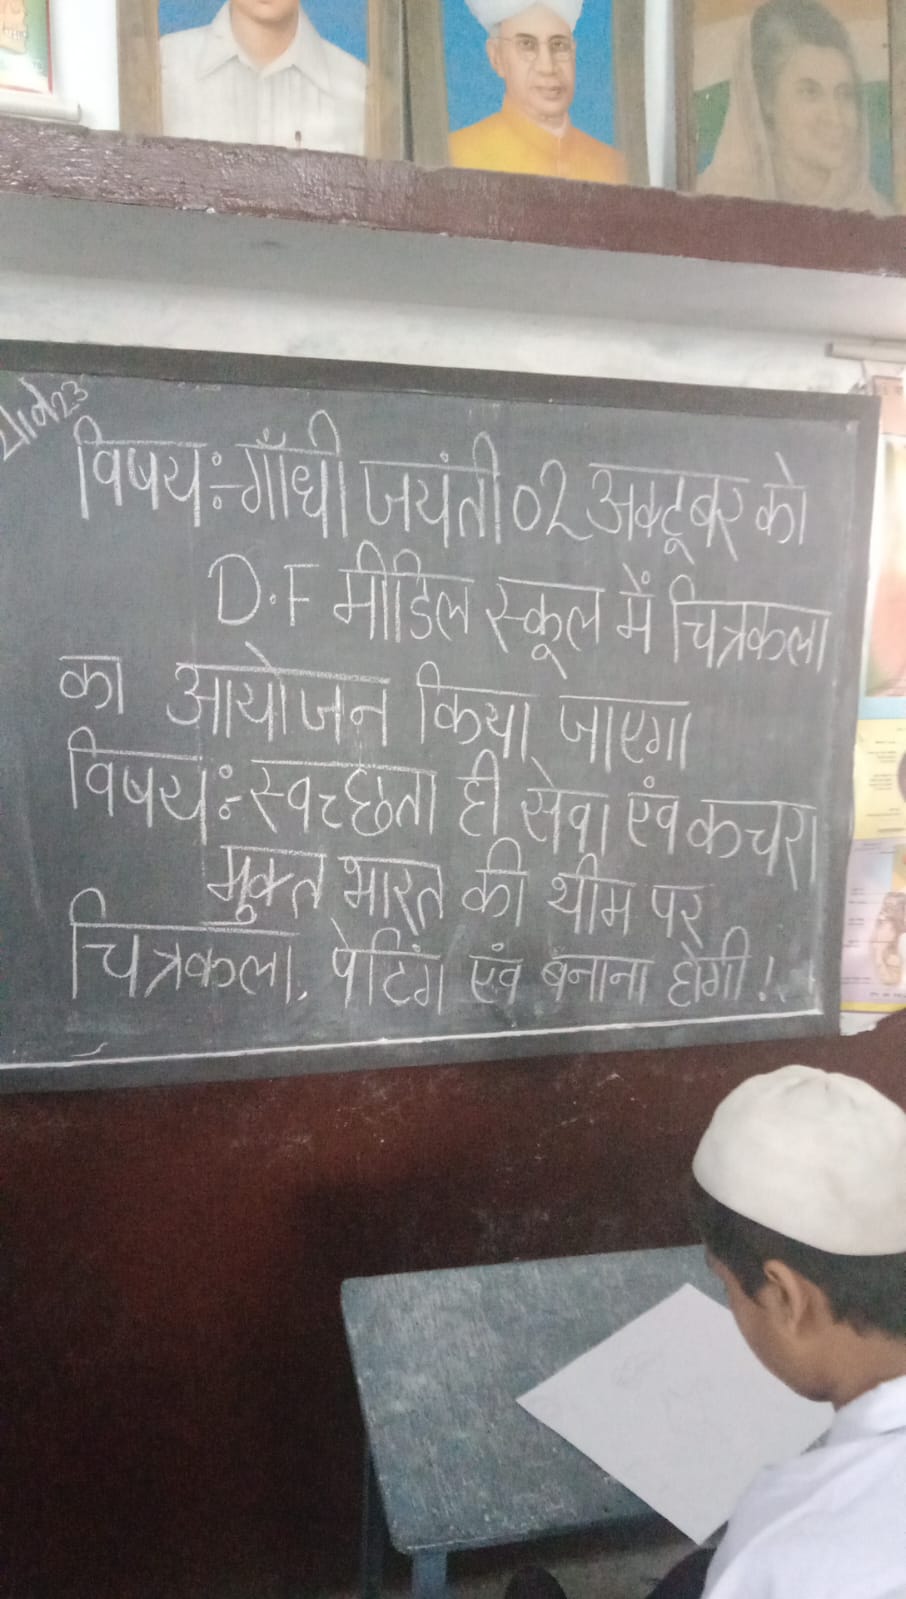 विषय:-गाँधी जयंती 02 अक्टूबर को
D.F मीडिल स्कूल में चित्रकला
का आयोजन किया जाएगा
विषय:-स्वच्छता ही सेवा एंव कचरा
मुक्त भारत की थीम पर
चित्रकला, पेटिंग एंव बँनाना होगी !